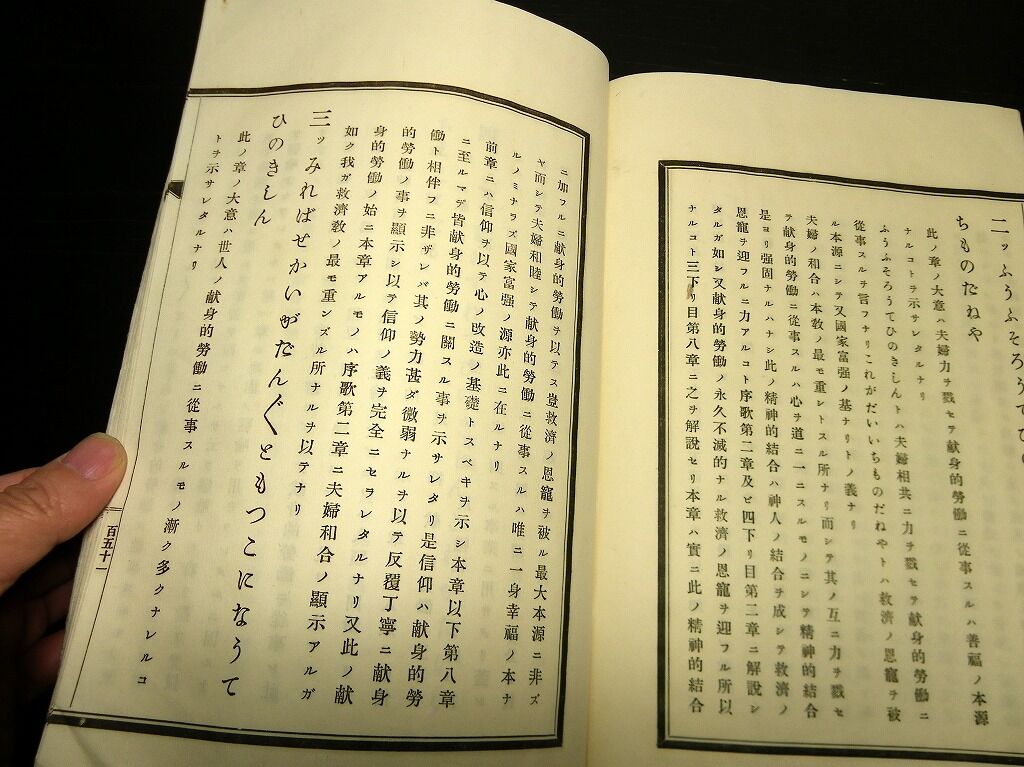 二ッふうふそろうてひの
ちものだねや
此ノ章ノ大意ハ夫婦力ヲ戮セテ献身的勞働ニ從事スルハ善福ノ本源
ナルコトヲ示サレタルナリ
ふうふそろうてひのきしんトハ夫婦相共ニ力ヲ戮セテ献身的勞働ニ
從事スルヲ言フナリこれがだいいちものだねやトハ救濟ノ恩寵ヲ被
ル本源ニシテ又國家富强ノ基ナリトノ義ナリ
夫婦ノ和合ハ本敎ノ最モ重シトスル所ナリ而シテ其ノ互ニ力ヲ戮セ
テ献身的勞働ニ從事スルハ心ヲ道ニ一ニスルモノニシテ精神的結合
是ヨリ强固ナルハナシ此ノ精神的結合ハ神人ノ結合ヲ成シテ救濟ノ
恩寵ヲ迎フルニ力アルコト序歌第二章及ビ四下リ目第二章ニ解說シ
タルガ如シ又献身的勞働ノ永久不滅的ナル救濟ノ恩寵ヲ迎フル所以
ナルコト三下リ目第八章ニ之ヲ解說セリ本章ハ實ニ此ノ精神的結合
ニ加フルニ献身的勞働ヲ以テス豈救濟ノ恩寵ヲ被ル最大本源ニ非ズ
ヤ而シテ夫婦和睦シテ献身的勞働ニ從事スルハ唯ニ一身幸福ノ本ナ
ルノミナラズ國家富强ノ源亦此ニ在ルナリ
前章ニハ信仰ヲ以テ心ノ改造ノ基礎トスベキヲ示シ本章以下第八章
ニ至ルマデ皆献身的勞働ニ關スル事ヲ示サレタリ是信仰ハ献身的勞
働ト相伴フニ非ザレバ其ノ勢力甚ダ微弱ナルヲ以テ反覆丁寧ニ献身
的勞働ノ事ヲ顯示シ以テ信仰ノ義ヲ完全ニセラレタルナリ又此ノ献
身的勞働ノ始ニ本章アルモノハ序歌第二章ニ夫婦和合ノ顯示アルガ
如ク我ガ救濟敎ノ最モ重ンズル所ナルヲ以テナリ
三ッみればせかいがだん〴〵ともつこになうて
ひのきしん
此ノ章ノ大意ハ世人ノ献身的勞働ニ從事スルモノ漸ク多クナレルコ
トヲ示サレタルナリ
百五十一